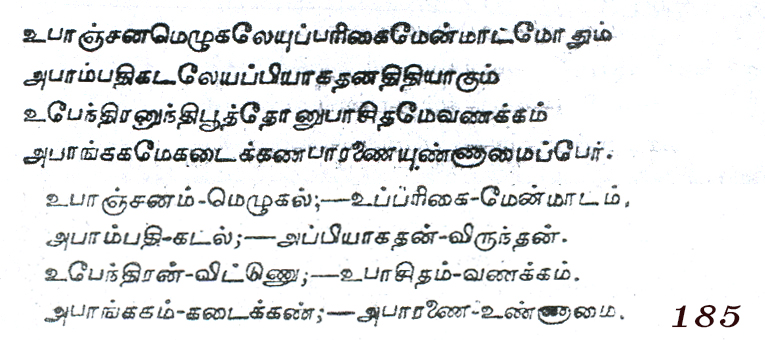 உபாஞ்சனமெழுகலேயுப்பரிகைமேன்மாட்மோ தும்
அபாம்பதிகடலேயப்பியாகதனதிதியாகும்
உபேந்திரனுந்திபூத்தோ னுபாசிதமேவணக்கம்
அபாங்ககமேகடைக்கணபாரணையுண்ணாமைப்பேர்.
உபாஞ்சனம்-மெழுகல்;—உப்பரிகை-மேன்மாடம்.
அபாம்பதி-கடல்;—அப்பியாகதன்-விருந்தன்.
உபேந்திரன்-விட்டுணு;—உபாசிதம்-வணக்கம்.
அபாங்ககம்-கடைக்கண்;—அபாரணை-உண்ணாமை.
185